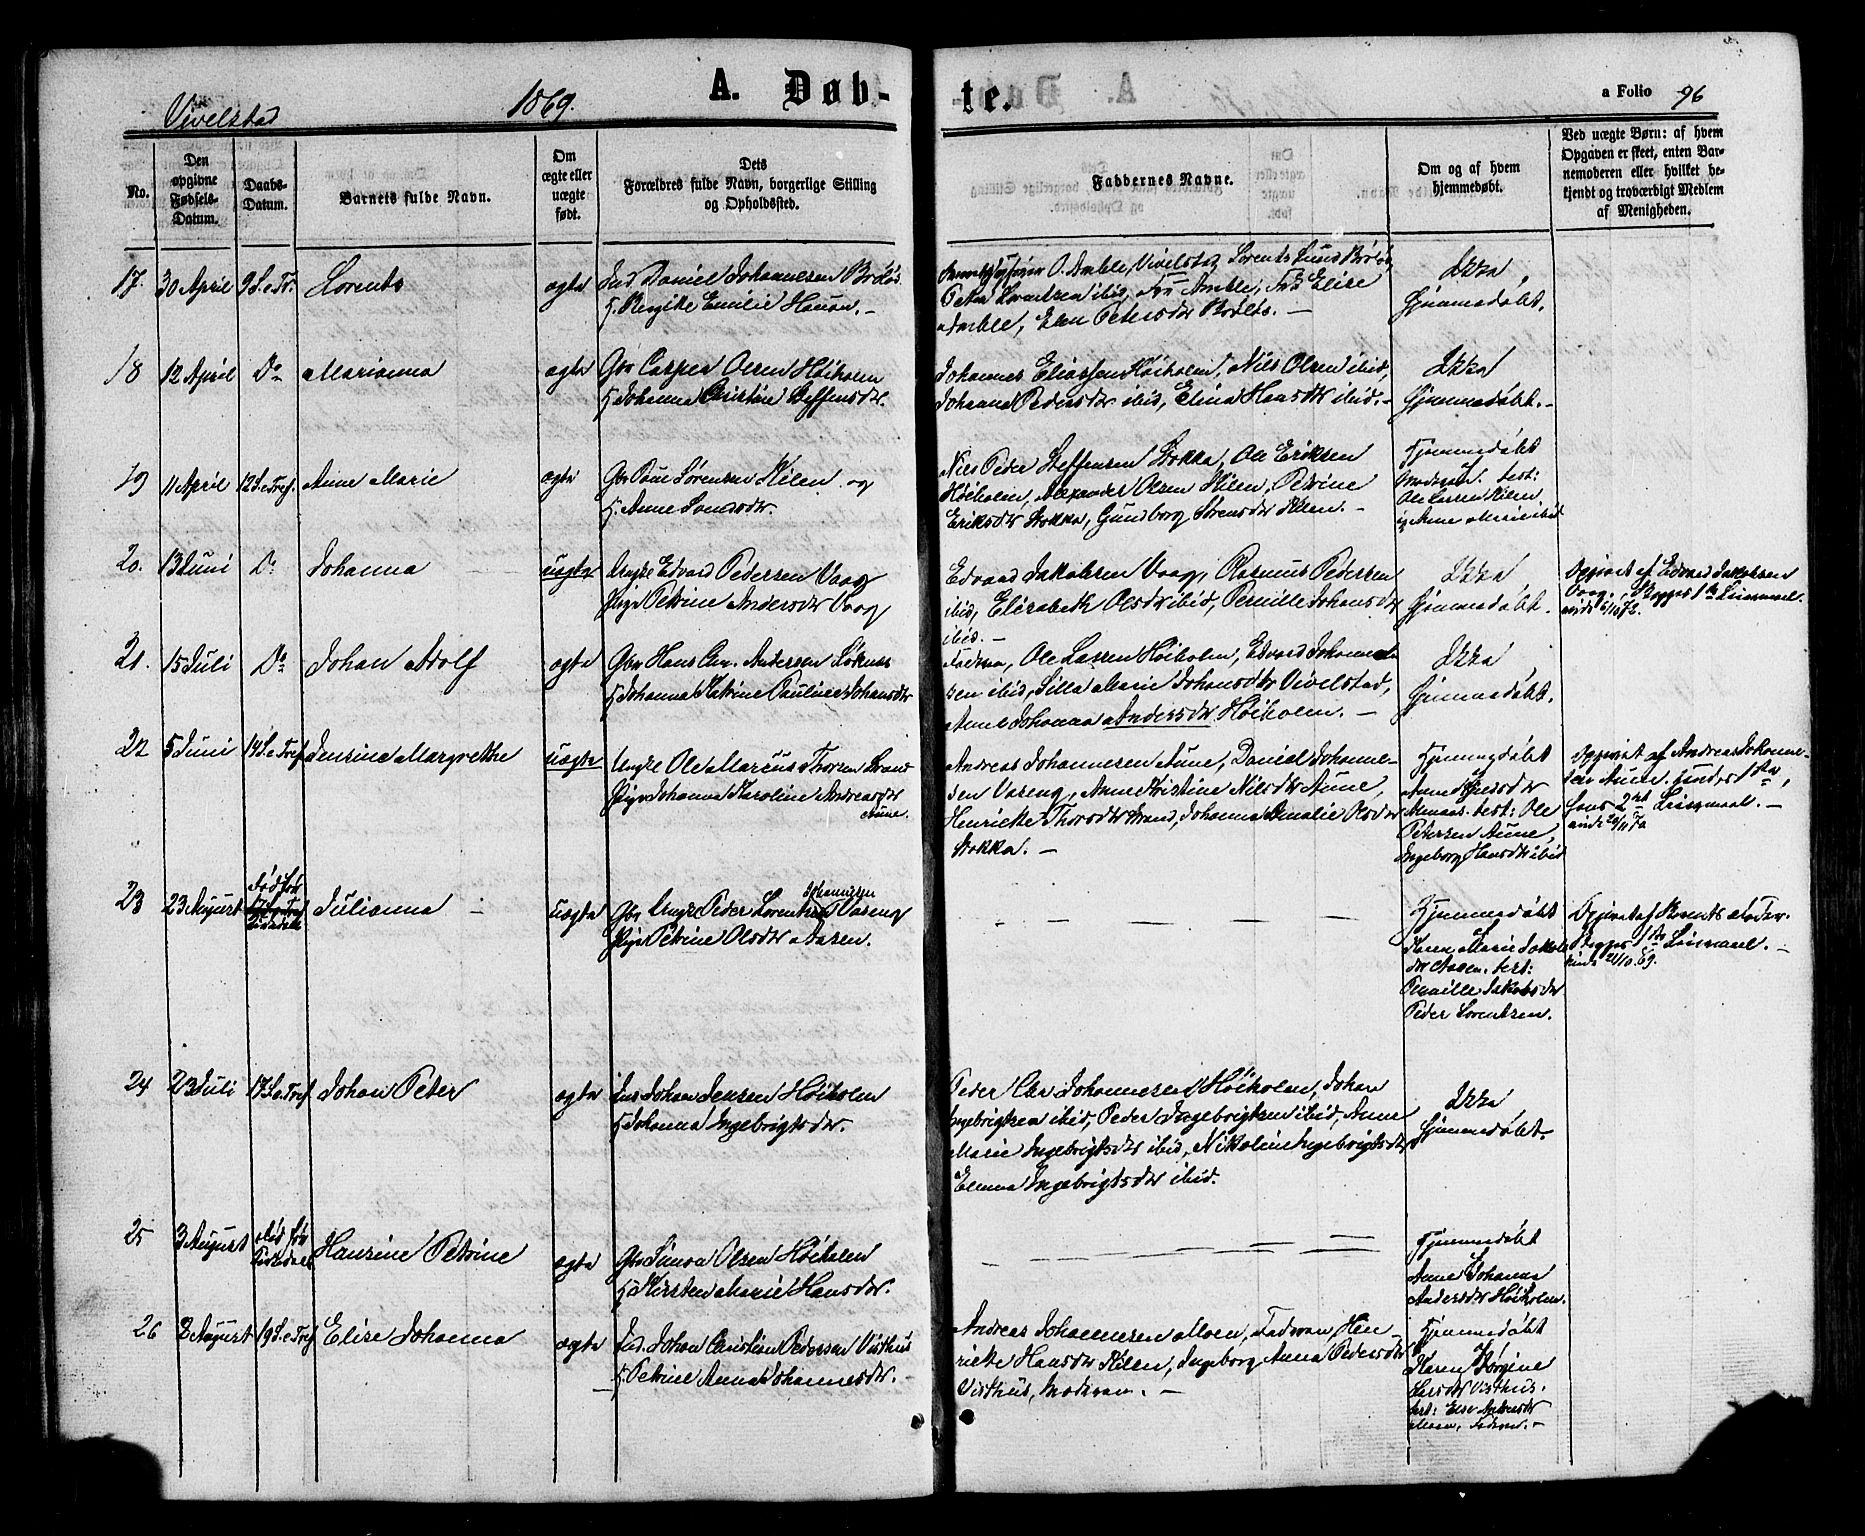 Vivelstad 1869. A. Døb- te. a Folio 96
No.
Den opgivne Fødsels-Datum.
Daabs-Datum.
Barnets fulde Navn.
Om ægte eller uægte født.
Dets Forældres fulde Navn, borgerlige Stilling og Opholdssted.
Faddernes Navne.
Om og af hvem hjemmedøbt.
Ved uægte Børn: af hvem Opgaven er skeet, enten Barnemoderen eller hvilket bekjendt og troværdigt Medlem af Menigheden.
17. 30 April 9 S. e Tr. Lorents ægte Ind. Daniel Johannesen
Emilie Hansen. –
O. Amble, Vivelstad, Lorents
Peter Lorentsen ibid, Fru Amble, Frk Elise
Amble, Elen Petersdtr
Ikke
hjemmedøbt.
18 12 April Do Marianna ægte Gbr Casper Olsen Høiholm
H Johanna Christine Steffensdtr.
Johannes Eliassen Høiholm, Nils Olsen ibid,
Johanna Pedersdtr ibid, Elina Hansdtr ibid. –
Ikke
hjemmedøbt. –
19 11 April 12 S. e Tref. Anne Marie ægte Gbr Paul Sørensen Kilen og
H. Anne Jonasdtr.
Nils Peder Steffensen Stokka, Ole Eriksen
Høiholm, Alexander Olsen Kilen, Petrine
Eriksdtr Stokka, Gundborg Sørensdtr Kilen. –
Hjemmedøbt
test:
Ole Larsen Kilen
og Anne Marie ibid
20. 13 Juni Do Johanna uægte Ungk Edvard Pedersen Vaag
Pige Petrine Andersdtr Vaag
Edvard Jakobsen Vaag, Rasmus Pedersen
ibid, Elisabeth Olsdtr ibid, Pernille Johansdtr
ibid. –
Ikke
hjemmedøbt.
Opgivet af Edvard Jakobsen
Vaag, Begges 1ste Leiermaal.
21. 15 Juli Do Johan Adolf ægte Gbr Hans Chr. Andersen
H Johanna Katrine Pauline Johansdtr
Faderen, Ole Larsen Høiholm, Edvard Johanne-
sen ibid, Silla Marie Johansdtr Vivelstad,
Anne Johanna Andersdtr Høiholm. –
Ikke
hjemmedøbt.
22 5 Juni 14 S. e Tref Jensine Margrethe uægte Ungk Ole Marcus Thorsen Strand
Pige Johanna Karoline Andreasdtr
Aune.
Andreas Johannesen Aune, Daniel Johanne-
sen Vareng, Anne Kristine Nilsdtr Aune,
Henrikke Thorsdtr Strand, Johanna Amalie Olsdtr
Stokka. –
Hjemmedøbt
test: Ole
Petersen Aune,
Ingeborg Hansdtr ibid
Opgivet af Andreas Johanne-
sen Aune. 1ste,
Hans 2det Leiermaal. –
23 23 August Død før Julianna – uægte Ungk Peder Lorentsen Johannesen Vareng
Pige Petrine Olsdtr Aasen.
– – – – – – –
Hjemmedøbt
Karen Marie Jakobs
dtr Aasen. test:
Pernille Jakobsdtr
Peder Lorentsen.
Opgivet af Barnets Fader.
Begges 1ste Leiermaal. –
21/10. 69.
24 23 Juli 17 S. e Tref Johan Peter ægte Ind Johan Jensen Høiholm
H Johanna Ingebrigtsdtr.
Peder Chr Johannesen Høiholm, Johan
Ingebrigtsen ibid, Peder Ingebrigtsen ibid, Anne
Marie Ingebrigtsdtr ibid, Nikoline Ingebrigtsdtr
Elenna Ingebrigtsdtr ibid.
Ikke
hjemmedøbt.
25 3 August Død før Hansine Petrine ægte Gbr Simon Olsen Høiholm
H Kirsten Marie Hansdtr.
– – – – – – –
Hjemmedøbt
Anne Johanna
Andersdtr Høiholm.
26 8 August 19 S. e Tref Elise Johanna ægte Ind. Johan Christian Pedersen Visthus
H Petrine Anna Johannesdtr. –
Andreas Johannesen Moen, Faderen, Hen-
rikke Hansdtr Kilen, Ingeborg Anna Pedersdtr
Visthus, Moderen. –
Hjemmedøbt
Karen Jørgine
Larsdtr Visthus.
test: Else
Moen, Faderen. –